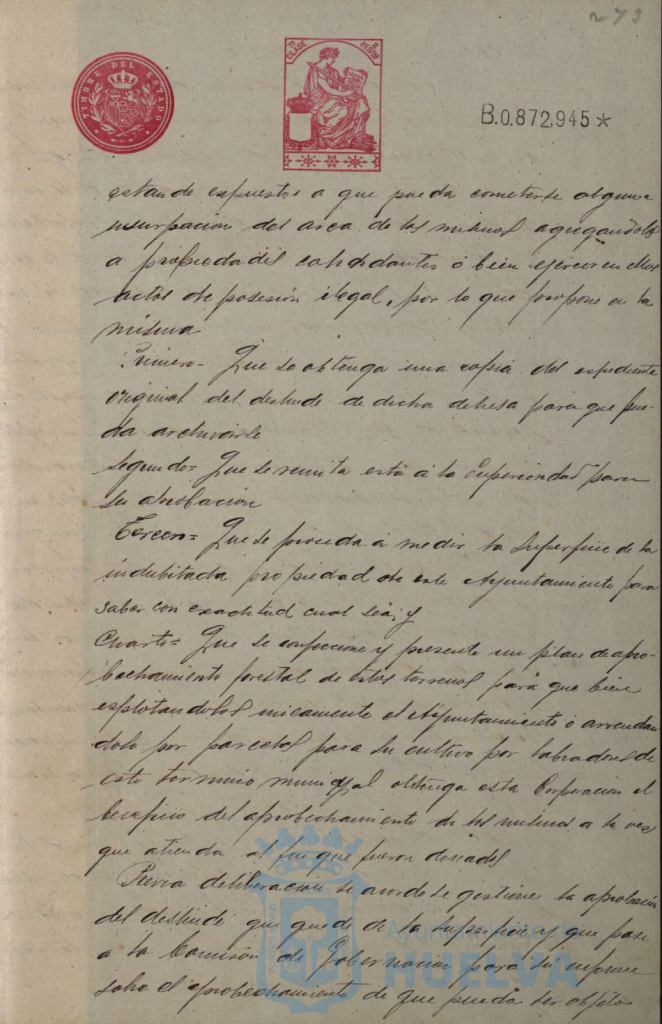 273
TIMBRE DEL ESTADO
7ª CLASE
B.0.872,945*
estando expuestos a que pueda cometerse alguna
usurpacion del area de los mismos agregandolos
a propiedades colindantes ó bien ejercer en ellos
actos de posesión ilegal, por lo que propone en la
misma
Primero- Que se obtenga una copia del expediente
original del deslinde de dicha dehesa para que pue-
da archivarse
Segundo= Que se remita esta á la Superioridad para
su aprobacion
Tercero= Que se proceda á medir la superficie de la
indubitada propiedad de este Ayuntamiento para
saber con exactitud cual sea; y
Cuarto= Que se confeccione y presente un plan de apro-
bechamiento forestal de estos terrenos para que bien
explotandolos unicamente el Ayuntamiento ó arrendan
dolo por parcelas para su cultivo por labradores de
este termino municipal obtenga esta Corporacion el
beneficio del aprobechamiento de los mismos a la vez
que atienda al fin que fueron donados
Previa deliberacion se acordo se gestione la aprobacion
del deslinde que quede de la superficie y que pase
a la Comisión de Gobernacion para su informe
sobre el aprobechamiento de que pueda ser objeto
Ayuntamiento de
HUELVA